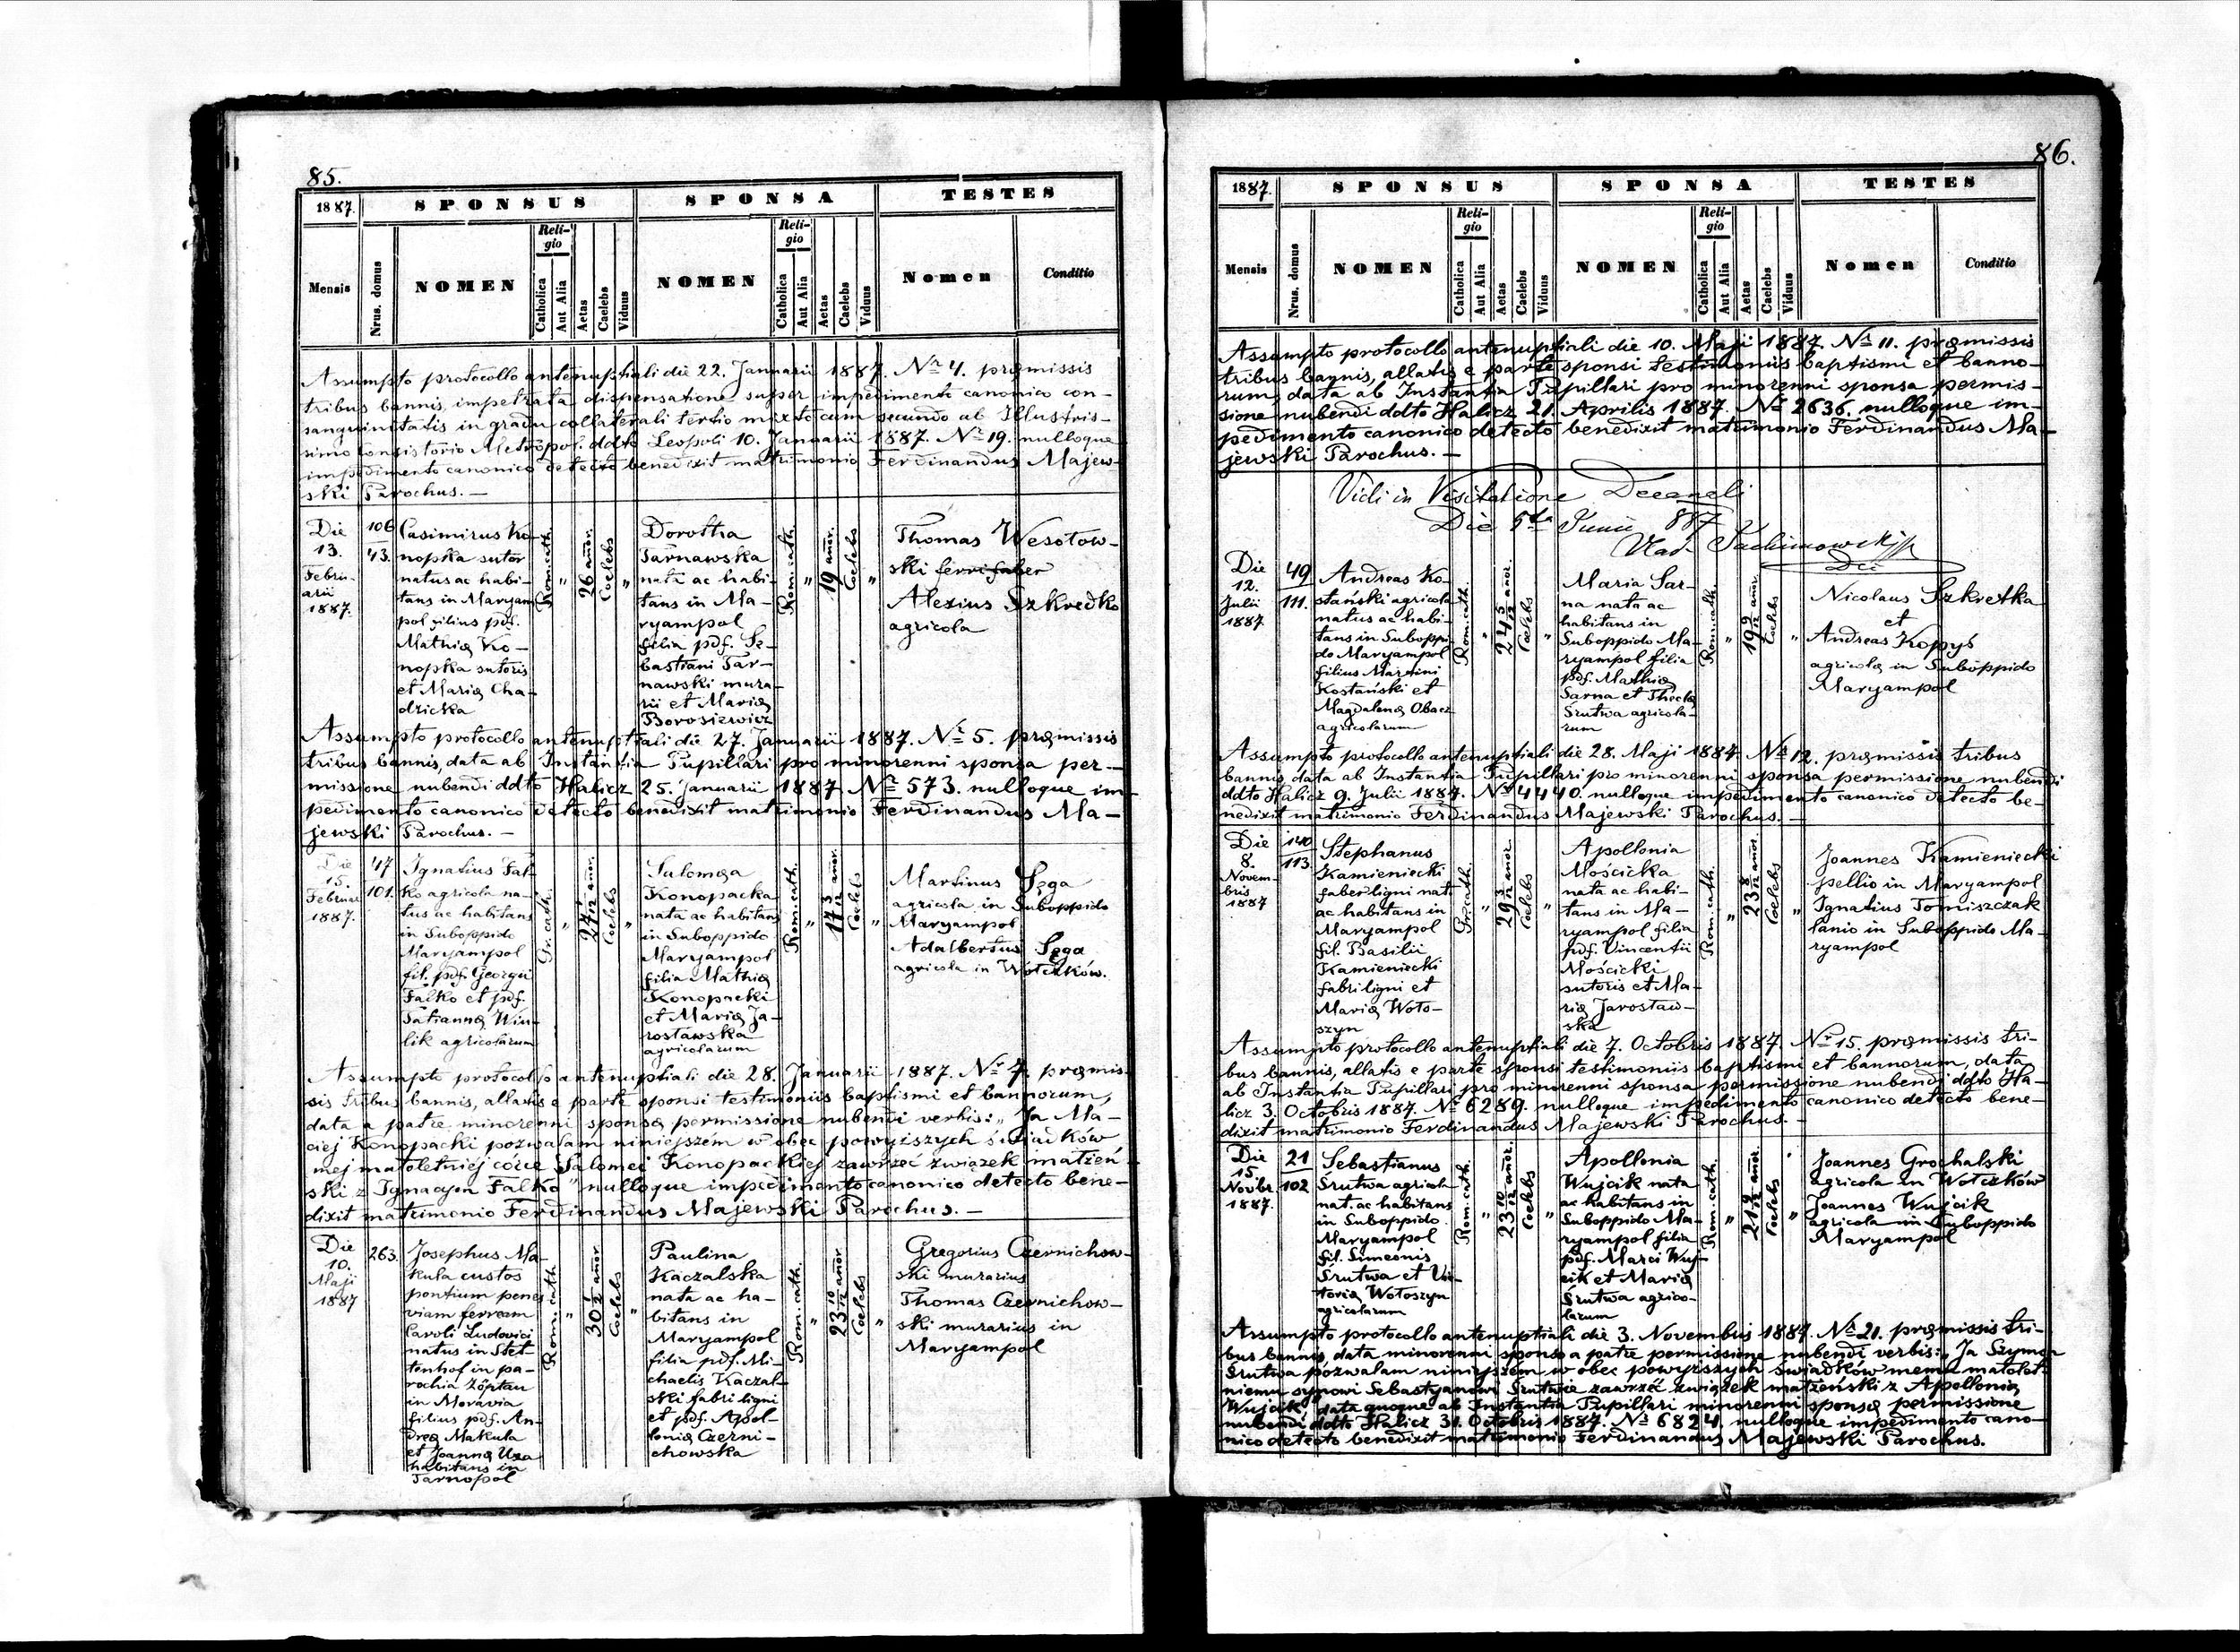 85.
1887.
SPONSUS
SPONSA
TESTES
Mensis
Nrus. domus
NOMEN
Religio
Catholica
Aut Alia
Aetas
Caelebs
Viduus
NOMEN
Religio
Catholica
Aut Alia
Aetas
Caelebs
Viduus
Nomen
Conditio
Assumpto protocollo antenuptiali die 22. Januarii 1887. No 4. præmissis
tribus bannis, impetrata dispensatione super impedimento canonico con-
sanguinitatis in gradu collaterali tertio mixto cum secundo ab Illustris-
simo Consistorio Metropol. ddto Leopoli 10. Januarii 1887. No 19. nulloque
impedimento canonico detecto benedixit matrimonio Ferdinandus Majew-
ski Parochus. —
Die
13.
Febru-
arii
1887.
106
43.
Casimirus Ko-
nopka sutor
natus ac habi-
tans in Maryam
pol filius pdf.
Mathiæ Ko-
nopka sutoris
et Mariæ Cha-
dzicka
Rom. cath.
"
26 annor.
Coelebs
"
Dorothea
Tarnawska
nata ac habi-
tans in Ma-
ryampol
filia pdf. Se-
bastiani Tar-
nawski mura-
rii et Mariæ
Borosiewicz
Rom. cath.
"
19 annor.
Coelebs
"
Thomas Wesołow-
ski ferrifaber
Alexius Szkredko
agricola
Assumpto protocollo antenuptiali die 27. Januarii 1887. No 5. præmissis
tribus bannis, data ab Instantia Pupillari pro minorenni sponsa per-
missione nubendi ddto Halicz 25. Januarii 1887 No 573. nulloque im-
pedimento canonico detecto benedixit matrimonio Ferdinandus Ma-
jewski Parochus. —
Die
15.
Februar
1887.
47
101.
Ignatius Fal-
ko agricola na-
tus ac habitans
in Suboppido
Maryampol
fil. pdf. Georgii
Falko et pdf.
Tatiannæ Win-
lik agricolarum
Gr. cath.
"
27 1/12 annor.
Coelebs
"
Salomea
Konopacka
nata ac habitans
in Suboppido
Maryampol
filia Mathiæ
Konopacki
et Mariæ Ja-
rosławska
agricolarum
Rom. cath.
"
17 3/12 annor.
Coelebs
"
Martinus Sęga
agricola in Suboppido
Maryampol
Adalbertus Sęga
agricola in Wołczków.
Assumpto protocollo antenuptiali die 28. Januarii 1887. No 7. præmis-
sis tribus bannis, allatis e parte sponsi testimoniis baptismi et bannorum,
data a patre minorenni sponsæ permissione nubendi verbis: „Ja Ma-
ciej Konopacki pozwalam niniejszém w obec powyższych świadków
mej małoletniéj córce Salomei Konopackiej zawrzeć związek małżeń-
ski z Ignacym Falko" nulloque impedimento canonico detecto bene-
dixit matrimonio Ferdinandus Majewski Parochus. —
Die
10.
Maji
1887
263.
Josephus Ma-
kula custos
pontium penes
viam ferream
Caroli Ludovici
natus in Stet-
tenhof in pa-
rochia Zöptau
in Moravia
filius pdf. An-
dreæ Makula
et Joannæ Uxa
habitans in
Tarnopol
Rom. cath.
"
30 1/12 annor.
Coelebs
"
Paulina
Kaczalska
nata ac ha-
bitans in
Maryampol
filia pdf. Mi-
chaelis Kaczal-
ski fabri ligni
et pdf. Apol-
loniæ Czerni-
chowska
Rom. cath.
"
23 10/12 annor.
Coelebs
"
Gregorius Czernichow-
ski murarius
Thomas Czernichow-
ski murarius in
Maryampol
86.
1887.
SPONSUS
SPONSA
TESTES
Mensis
Nrus. domus
NOMEN
Religio
Catholica
Aut Alia
Aetas
Caelebs
Viduus
NOMEN
Religio
Catholica
Aut Alia
Aetas
Caelebs
Viduus
Nomen
Conditio
Assumpto protocollo antenuptiali die 10. Maji 1887. No 11. præmissis
tribus bannis, allatis e parte sponsi testimoniis baptismi et banno-
rum, data ab Instantia Pupillari pro minorenni sponsa permis-
sione nubendi ddto Halicz 21. Aprilis 1887. No 2636. nulloque im-
pedimento canonico detecto benedixit matrimonio Ferdinandus Ma-
jewski Parochus. —
Vidi in Visitatione Decanali
Die 5ta Junii 887
Vlad.
Die
12.
Julii
1887
49
111.
Andreas Ko-
stański agricola
natus ac habi-
tans in Suboppi-
do Maryampol
filius Martini
Kostański et
Magdalenæ Obacz
agricolarum
Rom. cath.
"
24 5/12 annor.
Coelebs
"
Maria Sar-
na nata ac
habitans in
Suboppido Ma-
ryampol filia
pdf. Mathiæ
Sarna et Theclæ
Srutwa agricola-
rum
Rom. cath.
"
19 9/12 annor.
Coelebs
"
Nicolaus Szkretka
et
Andreas Kopyś
agricolæ in Suboppido
Maryampol
Assumpto protocollo antenuptiali die 28. Maji 1887. No 12. præmissis tribus
bannis, data ab Instantia Pupillari pro minorenni sponsa permissione nubendi
ddto Halicz 9. Julii 1887. No 4440. nulloque impedimento canonico detecto be-
nedixit matrimonio Ferdinandus Majewski Parochus. —
Die
8.
Novem-
bris
1887
140
113.
Stephanus
Kamieniecki
faber ligni nat.
ac habitans in
Maryampol
fil. Basilii
Kamieniecki
fabri ligni et
Mariæ Woło-
szyn
Gr. cath.
"
29 3/12 annor.
Coelebs
"
Apollonia
Mościcka
nata ac habi-
tans in Ma-
ryampol filia
pdf. Vincentii
Mościcki
sutoris et Ma-
riæ Jarosław-
ska
Rom. cath.
"
23 8/12 annor.
Coelebs
"
Joannes Kamieniecki
pellio in Maryampol
Ignatius Tomiszczak
lanio in Suboppido Ma-
ryampol
Assumpto protocollo antenuptiali die 7. Octobris 1887. No 15. præmissis tri-
bus bannis, allatis e parte sponsi testimoniis baptismi et bannorum, data
ab Instantia Pupillari pro minorenni sponsa permissione nubendi ddto Ha-
licz 3. Octobris 1887. No 6289. nulloque impedimento canonico detecto bene-
dixit matrimonio Ferdinandus Majewski Parochus. —
Die
15.
Novbr.
1887.
21
102
Sebastianus
Srutwa agricol.
nat. ac habitans
in Suboppido
Maryampol
fil. Simeonis
Srutwa et Vic-
toriæ Wołoszyn
agricolarum
Rom. cath.
"
23 10/12 annor.
Coelebs
"
Apollonia
Wujcik nata
ac habitans in
Suboppido Ma-
ryampol filia
pdf. Marci Wuj-
cik et Mariæ
Srutwa agrico-
larum
Rom. cath.
"
21 9/12 annor.
Coelebs
"
Joannes Grochalski
agricola in Wołczków
Joannes Wujcik
agricola in Suboppido
Maryampol
Assumpto protocollo antenuptiali die 3. Novembris 1887. No 21. præmissis tri-
bus bannis, data minorenni sponso a patre permissione nubendi verbis: „Ja Szymon
Srutwa pozwalam niniejszém w obec powyższych świadków memu małolet-
niemu synowi Sebastyanowi Srutwie zawrzéć związek małżeński z Apollonią
Wujcik" data quoque ab Instantia Pupillari minorenni sponsæ permissione
nubendi ddto Halicz 31. Octobris 1887. No 6824. nulloque impedimento cano-
nico detecto benedixit matrimonio Ferdinandus Majewski Parochus.